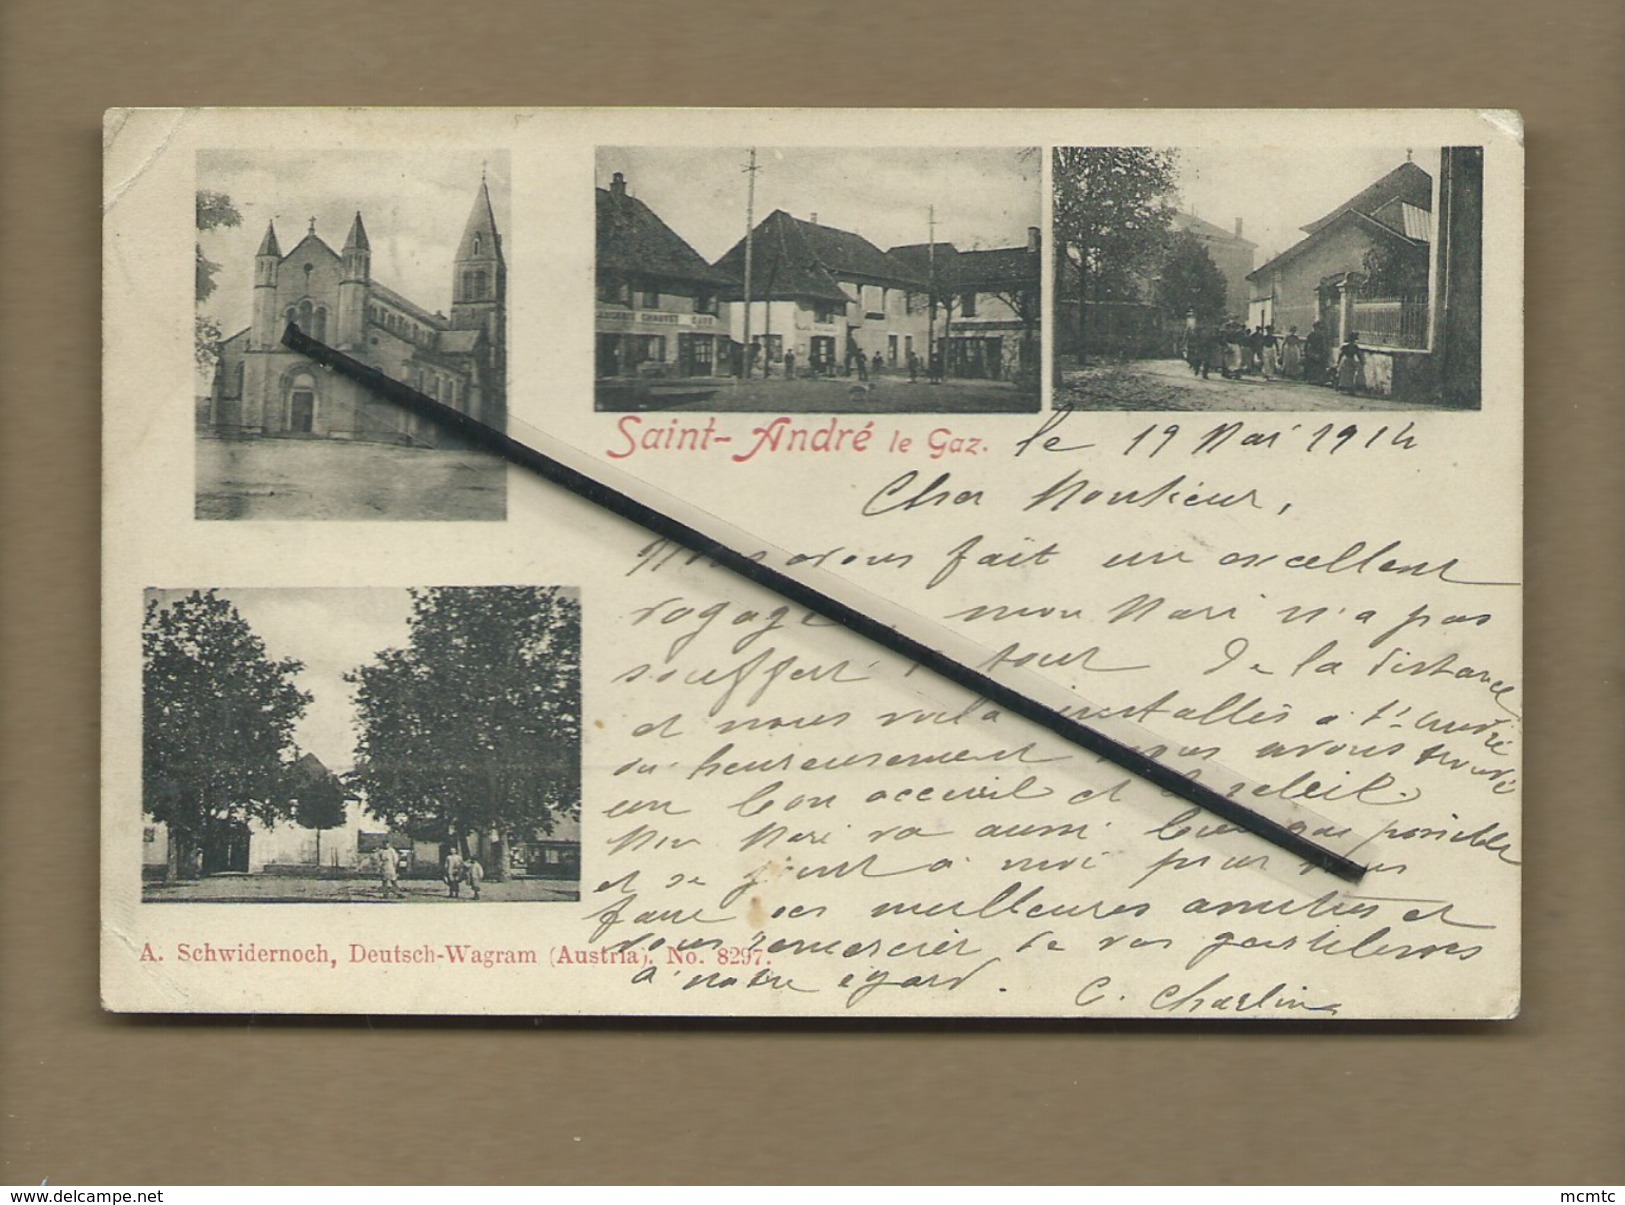 CHAUVET CAFE
Saint-André le Gaz. le 19 Mai 1914
Cher Monsieur,
Nous avons fait un excellent
voyage, mon Mari n'a pas
souffert du tout de la distance
et nous voila installés à St André
où heureusement nous avons trouvé
un bon acceuil et le soleil.
Mon Mari va aussi bien que possible
et se joint à moi pour vous
faire ses meilleures amitiés et
vous remercier de vos gentillesses
à notre égard. C. Charlin
A. Schwidernoch, Deutsch-Wagram (Austria). No. 8297.
delcampe.net
mcmtc